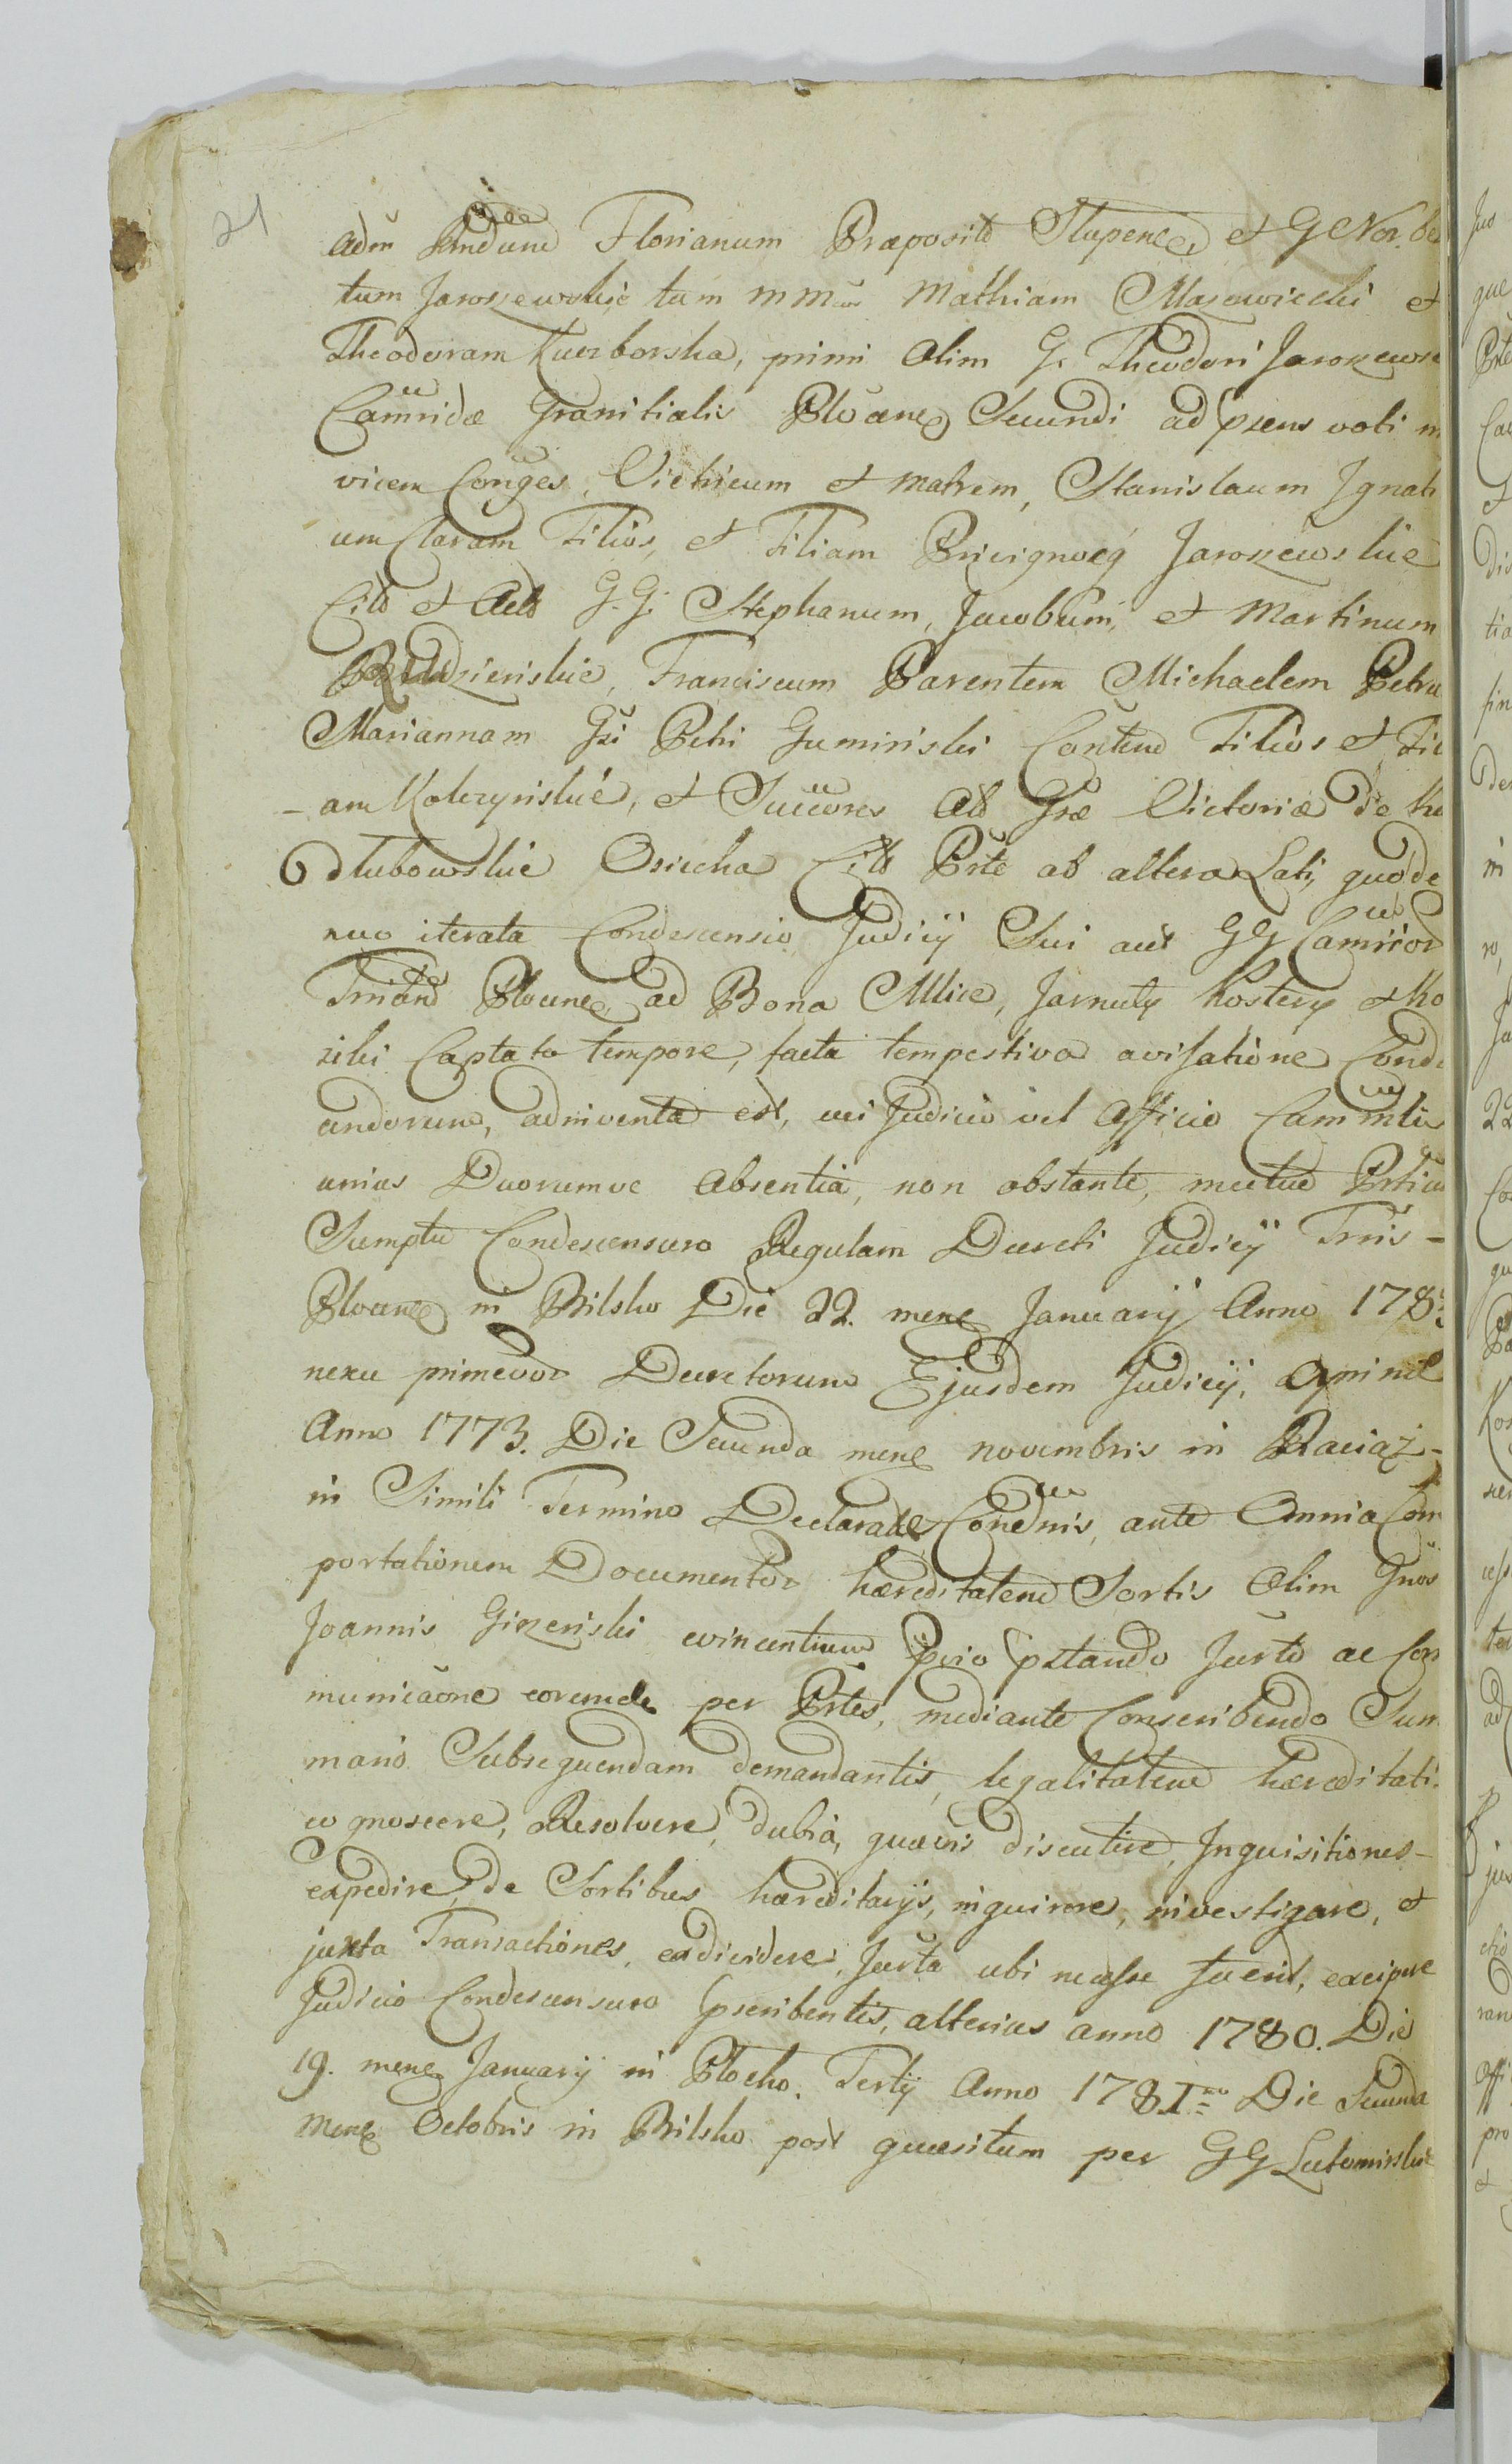 21
adm Rndum Florianum Præposit Slupenec et G Nor.be
tum Jaroszewskie tum mm Mathiam Mazowiecki et
Theodoram Kuczborska, primi olim G. Theodori Jaroszews
Camridæ Granitialis Plocanes Secundi ad psens voti in
vicem Conges, Vitricum et Matrem, Stanislaum Ignati
um Claram Filios, et Filiam Privignosq Jaroszewskie
Cito et Acto G.G. Stephanum, Jacobum, et Martinum
Franciscum Parentem Michaelem Petru
Mariannam Gsi Petri Guminski Contem Filios et Fili
-am Kolczynskie, et Succores Ab Gsæ Victoriæ de
Dlubowskie Osiecka Cito Prte ab altera Lati, quod de
nuo iterata Condescensio Judicij Sui aut GG Camrior
Trrianor Plocanes ad Bona Ulice, Jarnuty Kostery et Ko
ziki Captato tempore, facta tempestiva avisatione Conde
andorum, adinventa est, cui Judicio vel Officio Camrrlis
unius Duorumve Absentia, non obstante, mutuo Prtium
Sumptu Condescensuro Regulam Decreti Judicij Trris-
Plocanes in Bilsko Die 22. mens Januarij Anno 178
nexu primevor Decretorum Ejusdem Judicij, a primil
Anno 1773. Die Secunda mens novembris in Raciaz-
in Simili Termino Declarate Condnis, ante Omnia Com
portationem Documentor hæreditatem Sortis Olim Gnos
Joannis Gizenski evincentium prio pstando Jurto ac Com
municaone eorumde per Prtes, mediante Conscribendo Sum
mario Subsequendam demandantis, legalitatem hæreditati
cognoscere, Resolvere, dubia, quævis discutere, Inquisitiones-
expedire, de Sortibus hæreditarijs, inquirere, investigare, et
juxta Transactiones, exdividere, Jurta ubi necesse fuerit, excipere
Judicio Condescensuro pscribentis, alterius anno 1780. Die
19. mens Januarij in Plocko. Tertij Anno 1781mo Die Secunda
Mens Octobris in Bilsko post quæsitum per GG Lutomirskie